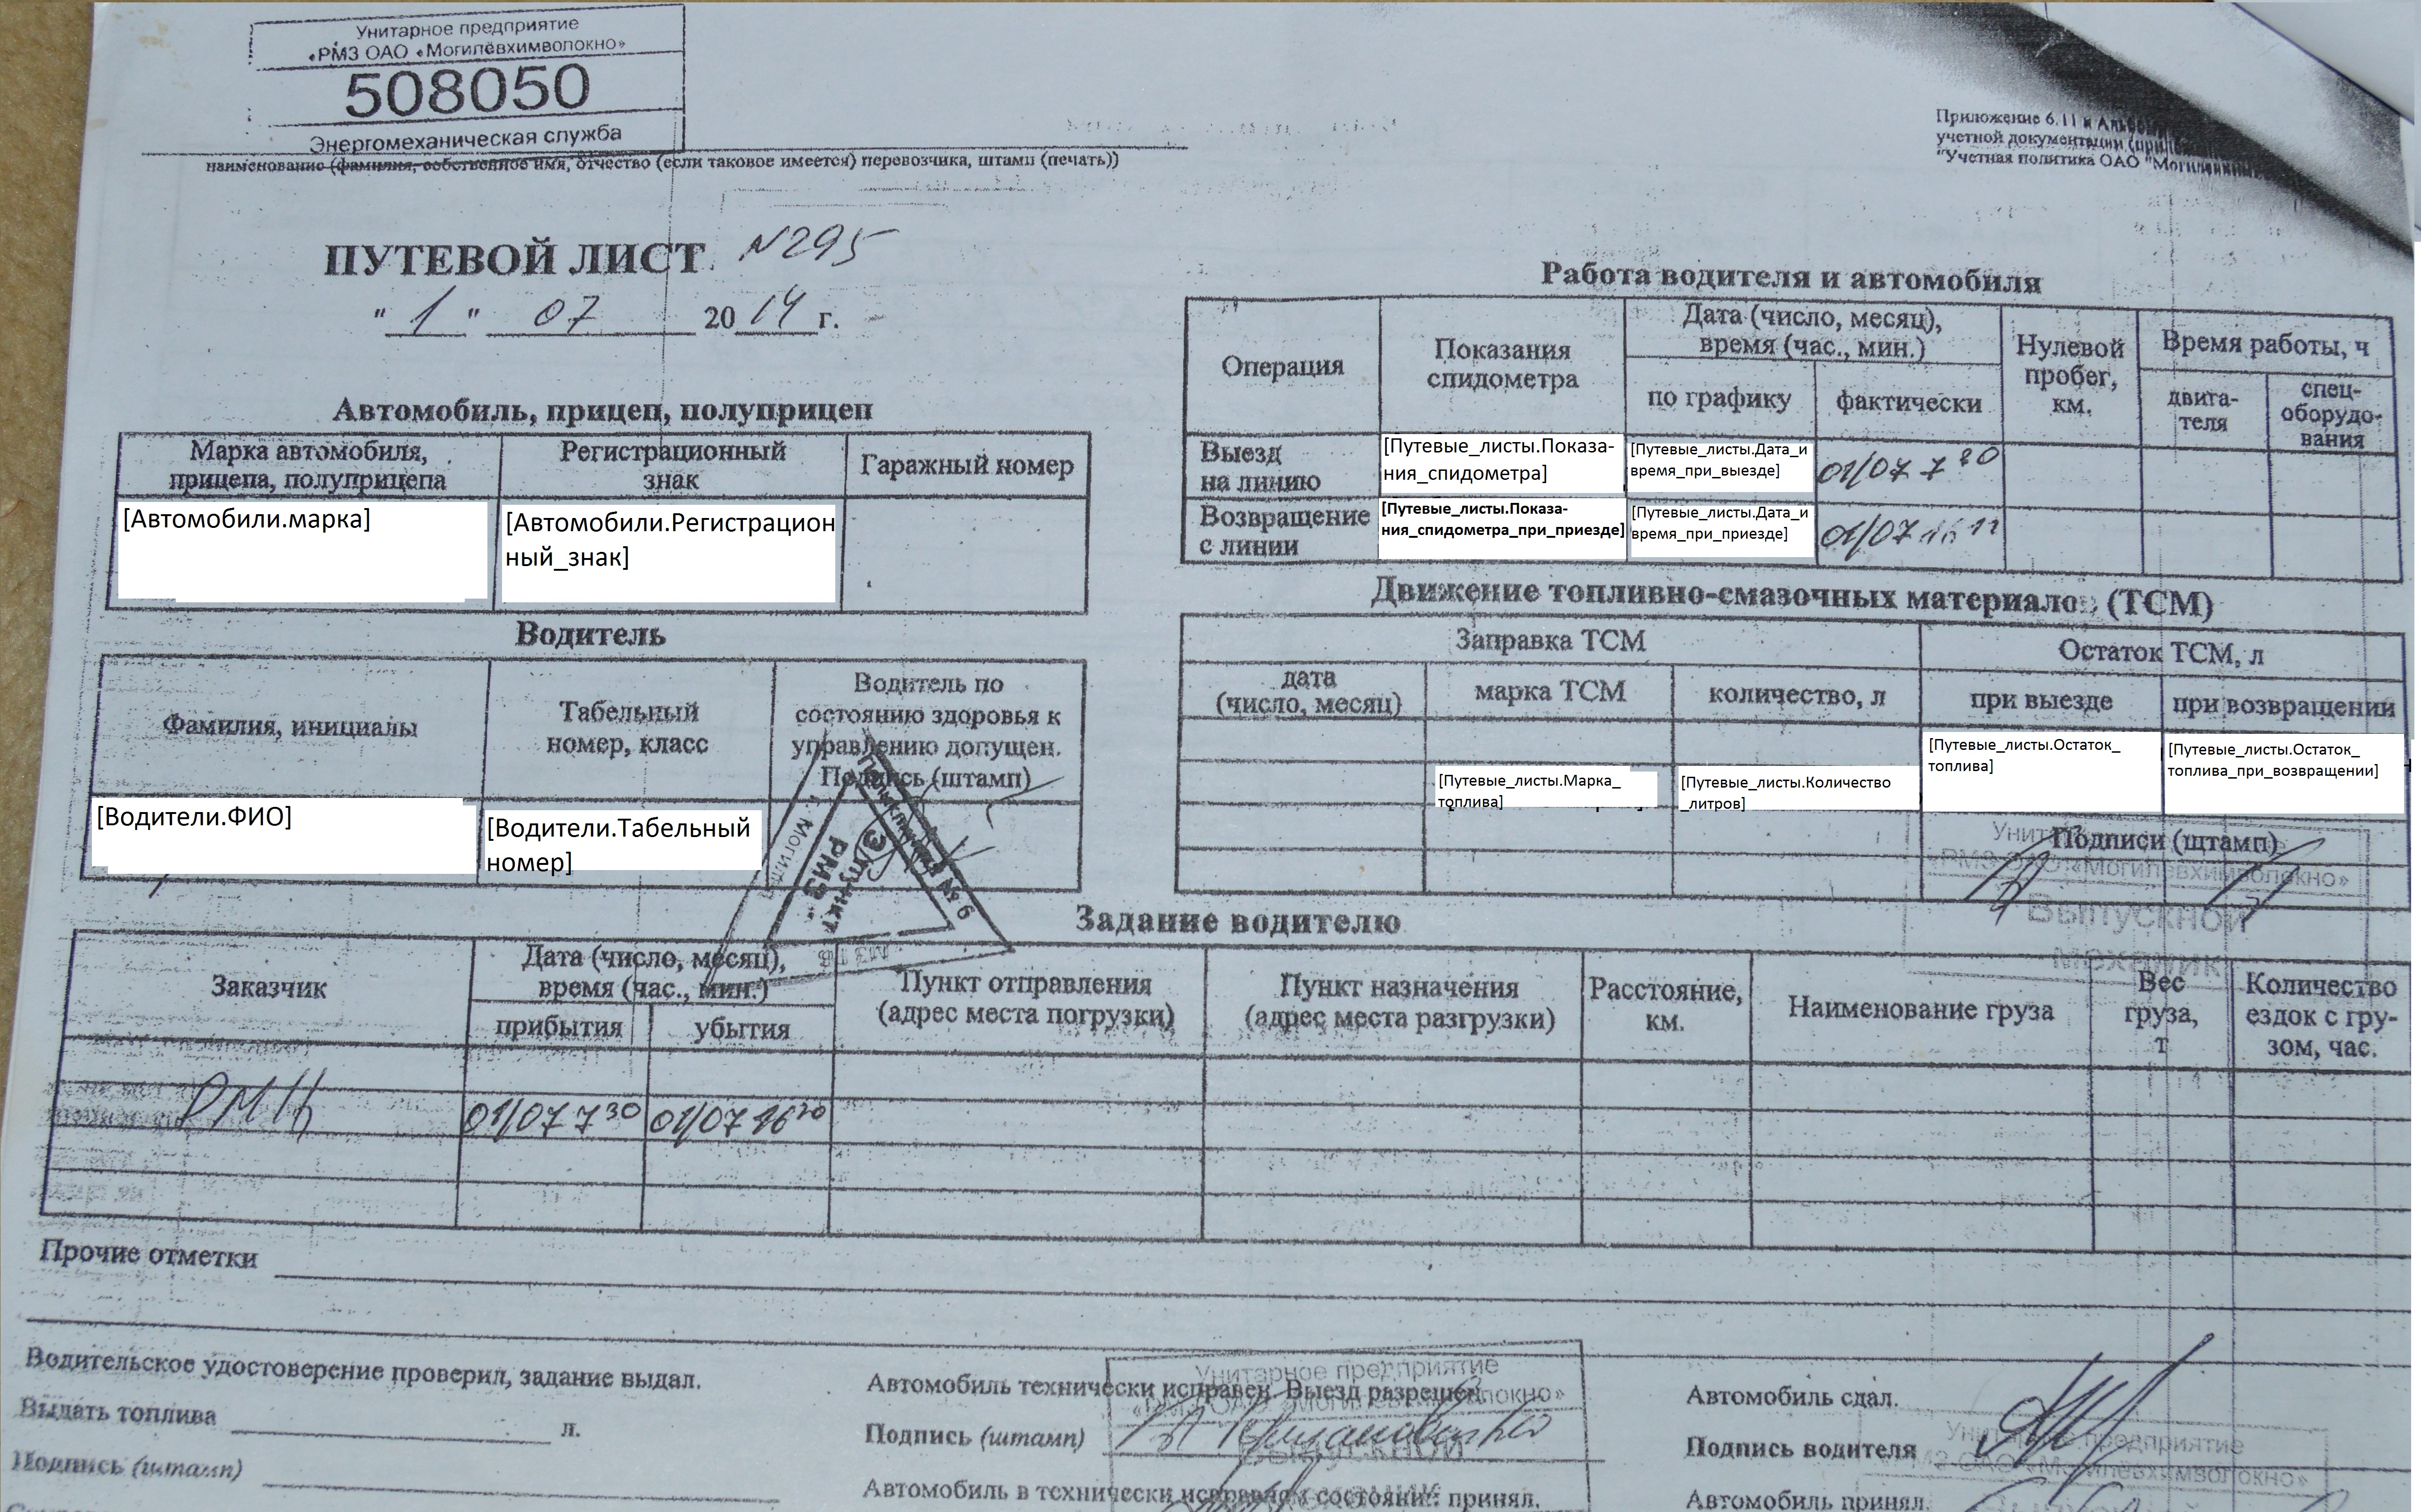 Унитарное предприятие
«РМЗ ОАО «Могилёвхимволокно»
508050
Энергомеханическая служба
наименование (фамилия, собственное имя, отчество (если таковое имеется) перевозчика, штамп (печать))
Приложение 6.11 к
учетной документации
"Учетная политика ОАО
ПУТЕВОЙ ЛИСТ N295
" 1 " 07 2014 г.
Автомобиль, прицеп, полуприцеп
Марка автомобиля,
прицепа, полуприцепа
Регистрационный
знак
Гаражный номер
[Автомобили.марка]
[Автомобили.Регистрацион
ный_знак]
Водитель
Фамилия, инициалы
Табельный
номер, класс
Водитель по
состоянию здоровья к
управлению допущен.
Подпись (штамп)
[Водители.ФИО]
[Водители.Табельный
номер]
Работа водителя и автомобиля
Операция
Показания
спидометра
Дата (число, месяц),
время (час., мин.)
по графику
фактически
Нулевой
пробег,
км.
Время работы, ч
двига-
теля
спец-
оборудо-
вания
Выезд
на линию
[Путевые_листы.Показа-
ния_спидометра]
[Путевые_листы.Дата_и
время_при_выезде]
01/07 7
Возвращение
с линии
[Путевые_листы.Показа-
ния_спидометра_при_приезде]
[Путевые_листы.Дата_и
время_при_приезде]
01/07
Движение топливно-смазочных материалов (ТСМ)
Заправка ТСМ
Остаток ТСМ, л
дата
(число, месяц)
марка ТСМ
количество, л
при выезде
при возвращении
[Путевые_листы.Марка_
топлива]
[Путевые_листы.Количество
_литров]
[Путевые_листы.Остаток_
топлива]
[Путевые_листы.Остаток_
топлива_при_возвращении]
Подписи (штамп)
«РМЗ ОАО «Могилёвхимволокно»
Выпускной
механик
№ 6
З/пункт
РМЗ
Задание водителю
Заказчик
Дата (число, месяц),
время (час., мин.)
прибытия
убытия
Пункт отправления
(адрес места погрузки)
Пункт назначения
(адрес места разгрузки)
Расстояние,
км.
Наименование груза
Вес
груза,
т
Количество
ездок с гру-
зом, час.
01/07 7 30
01/07 16 20
Прочие отметки
Водительское удостоверение проверил, задание выдал.
Выдать топлива л.
Подпись (штамп)
Унитарное предприятие
Автомобиль технически исправен. Выезд разрешен.
«РМЗ ОАО «Могилёвхимволокно»
Подпись (штамп)
Выпускной
Автомобиль в технически исправном состоянии принял.
Автомобиль сдал.
Унитарное предприятие
Подпись водителя
РМЗ ОАО «Могилёвхимволокно»
Автомобиль принял.